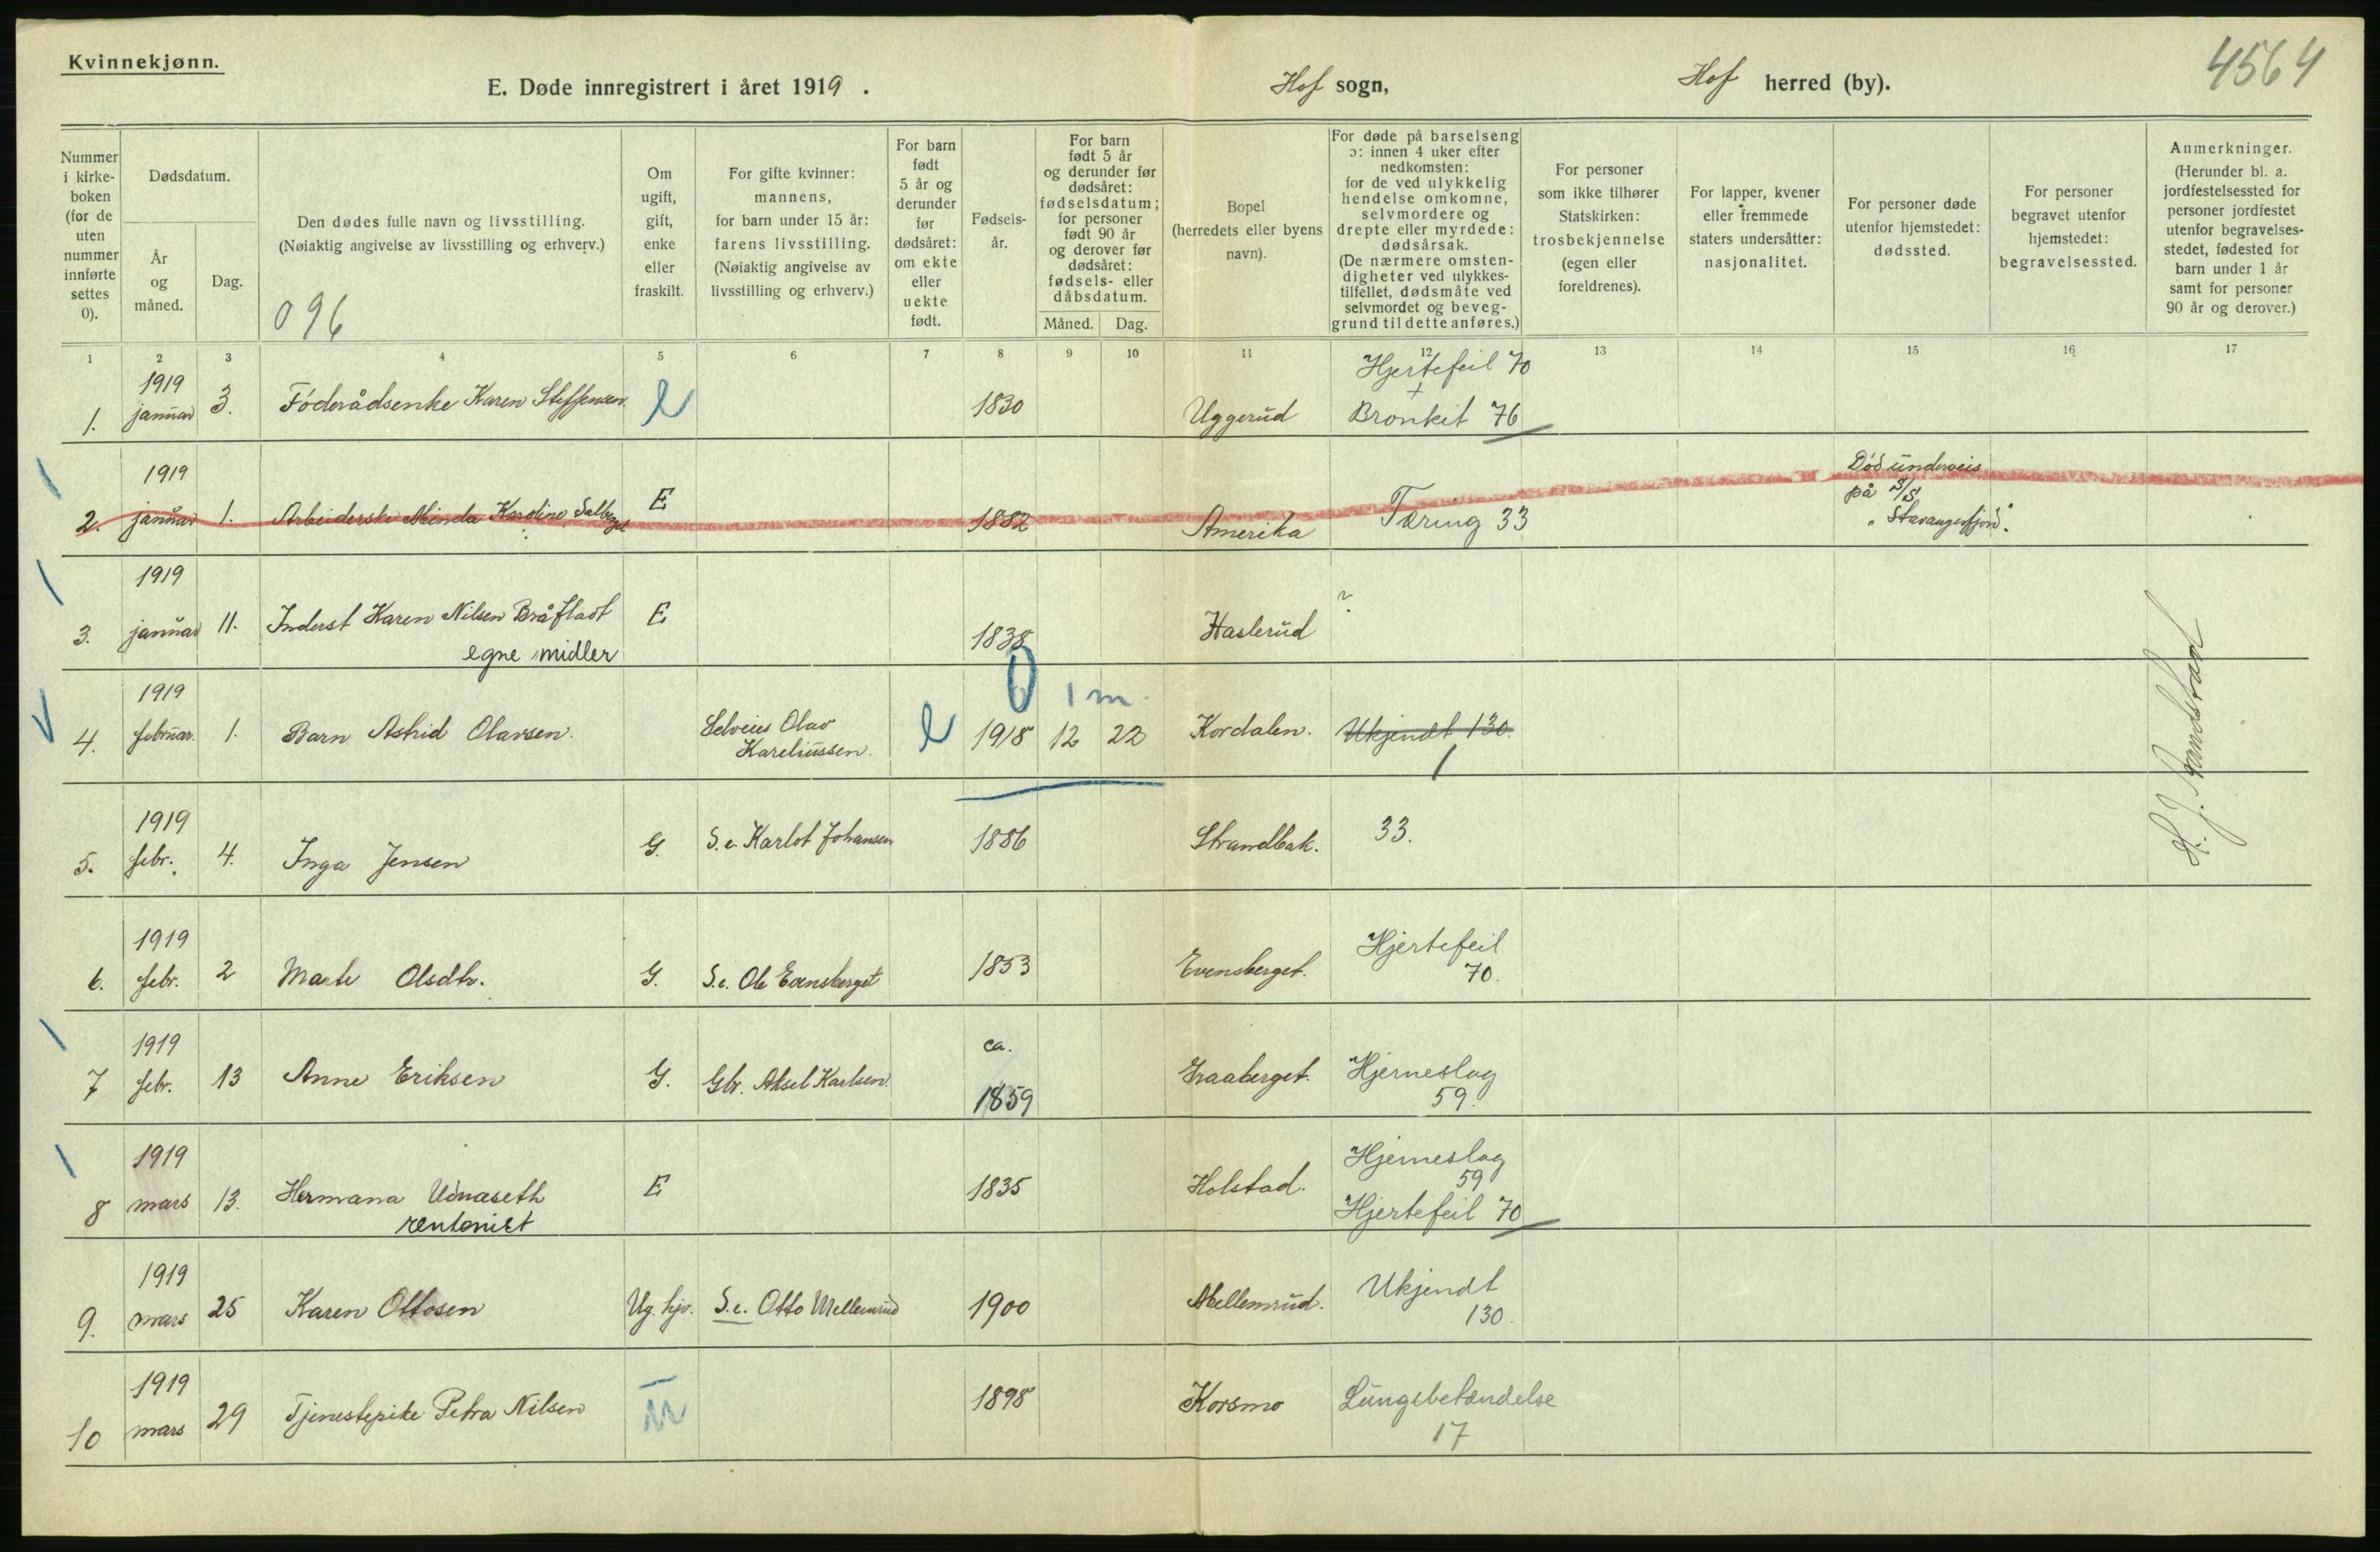 Kvinnekjønn.
E. Døde innregistrert i året 1919.
Hof sogn,
Hof herred (by).
4564
Nummer i kirke-boken (for de uten nummer innførte settes 0).
Dødsdatum.
År og måned.
Dag.
Den dødes fulle navn og livsstilling.
(Nøiaktig angivelse av livsstilling og erhverv.)
096
Om ugift, gift, enke eller fraskilt.
For gifte kvinner: mannens, for barn under 15 år: farens livsstilling. (Nøiaktig angivelse av livsstilling og erhverv.)
For barn født 5 år og derunder før dødsåret: om ekte eller uekte født.
Fødsels-år.
For barn født 5 år og derunder før dødsåret: fødselsdatum; for personer født 90 år og derover før dødsåret: fødsels- eller dåbsdatum.
Måned.
Dag.
Bopel (herredets eller byens navn).
For døde på barselseng ɔ: innen 4 uker efter nedkomsten: for de ved ulykkelig hendelse omkomne, selvmordere og drepte eller myrdede: dødsårsak. (De nærmere omsten-digheter ved ulykkes-tilfellet, dødsmåte ved selvmordet og beveg-grund til dette anføres.)
For personer som ikke tilhører Statskirken: trosbekjennelse (egen eller foreldrenes).
For lapper, kvener eller fremmede staters undersåtter: nasjonalitet.
For personer døde utenfor hjemstedet: dødssted.
For personer begravet utenfor hjemstedet: begravelsessted.
Anmerkninger. (Herunder bl. a. jordfestelsessted for personer jordfestet utenfor begravelses-stedet, fødested for barn under 1 år samt for personer 90 år og derover.)
1 2 3 4 5 6 7 8 9 10 11 12 13 14 15 16 17
1. 1919 januar 3. Föderådsenke Karen Steffensen e 1830 Uggerud Hjertefeil 70 + Bronkit 76
2. 1919 januar 1. Arbeiderske Minda Karoline E 1882 Amerika Tæring 33 Död underveis på S/S. "Stavangerfjord".
3. 1919 januar 11. Inderst Karen Nilsen Bråfladt egne midler E 1838 Haslerud ?
4. 1919 februar. 1. Barn Astrid Olavsen. Selveier Olav Kareliussen. e 1918 12 22 0 1 m. Kordalen. Ukjendt 130. 1
5. 1919 febr. 4. Inga Jensen G. S.e. Karlot Johansen 1886 Strandbak. 33.
6. 1919 febr. 2 Marte Olsdtr. G. S.e. Ole Evensberget 1853 Evensberget. Hjertefeil 70.
7 1919 febr. 13 Anne Eriksen G. Gbr. Aksel Karlsen. ca. 1859 Graaberget. Hjerneslag 59.
8 1919 mars 13. Hermana Udnaseth rentenist E 1835 Holstad. Hjerneslag 59 Hjertefeil 70
9. 1919 mars 25 Karen Ottosen Ug. hjv. S.e. Otto Mellemrud 1900 Mellemrud. Ukjendt 130.
10 1919 mars 29 Tjenestepike Petra Nilsen 1898 Korsmo Lungebetændelse 17